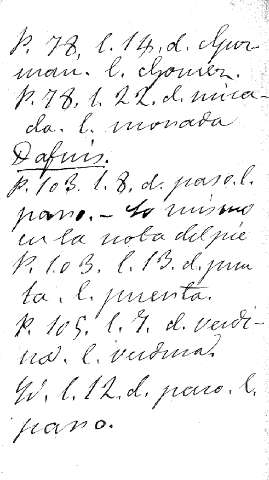 P. 78, l. 14, d. Gor-
man. l. Gomez.
P. 78, l. 22. d. mira-
da. l. monada
Dafnis.
P. 103. l. 8, d. paso. l.
paso. – Lo mismo
en la nota del pie
P. 103. l. 13. d. pun
ta. l. puesta.
P. 105. l. 7. d. verdi-
na. l. verdma.
Id. l. 12. d. paso. l.
paso.